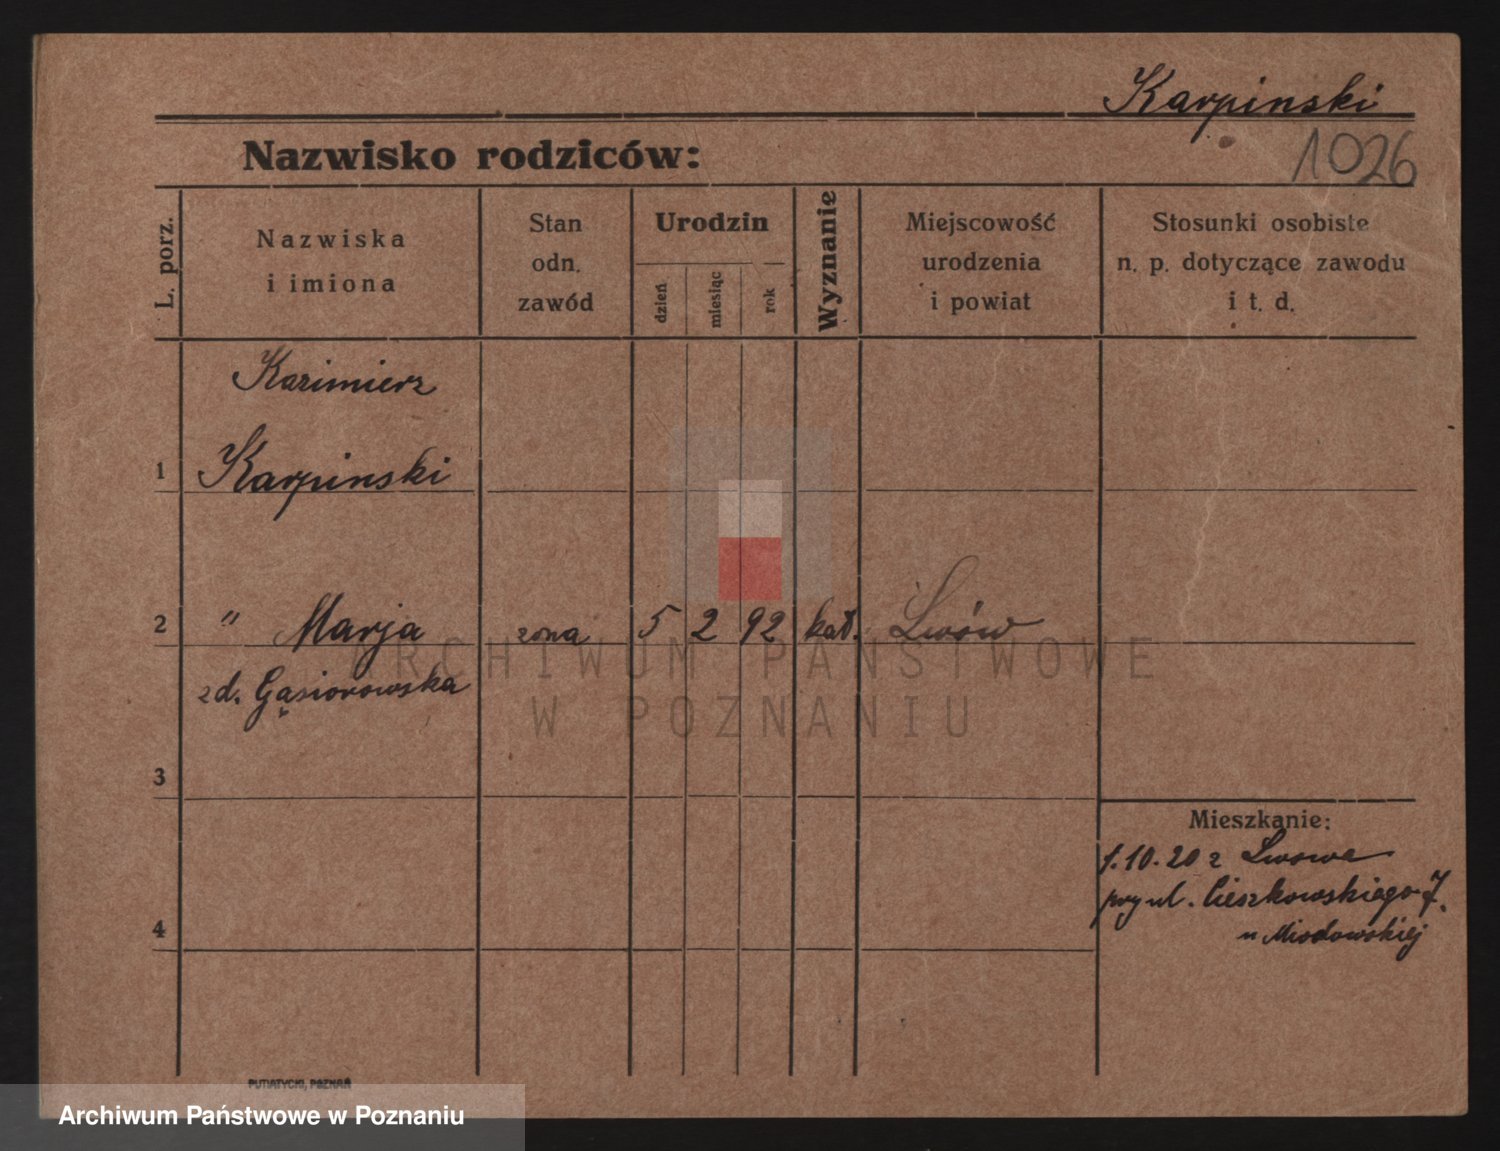 Karpinski
1026
Nazwisko rodziców:
L. porz.
Nazwiska
i imiona
Stan
odn.
zawód
Urodzin
dzień
miesiąc
rok
Wyznanie
Miejscowość
urodzenia
i powiat
Stosunki osobiste
n. p. dotyczące zawodu
i t. d.
Kazimierz
1 Karpinski
2 " Marja żona 5 2 92 kat. Lwów
zd. Gąsiorowska
3
Mieszkanie:
1.10.20 z Lwowa
przy ul. Cieszkowskiego 7.
4
u Miodowskiej
ARCHIWUM PAŃSTWOWE
W POZNANIU
PUTIATYCKI, POZNAŃ
Archiwum Państwowe w Poznaniu